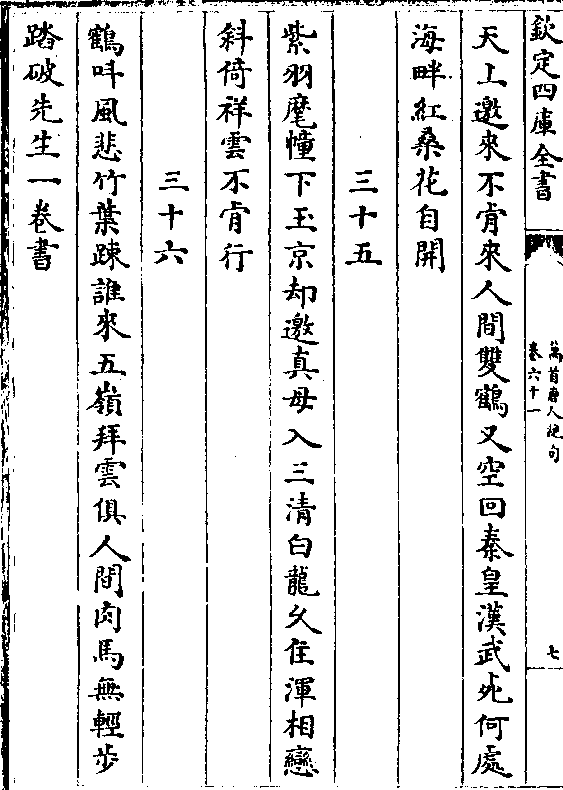 欽定四庫全書
萬首唐人絶句
卷六十一
七
天上邀來不肯來人間雙鶴又空回秦皇漢武死何處
海畔紅桑花自開
三十五
紫羽麾幢下玉京却邀真母入三清白龍久住渾相戀
斜倚祥雲不肯行
三十六
鶴叫風悲竹葉踈誰來五嶺拜雲俱人間肉馬無輕步
踏破先生一卷書